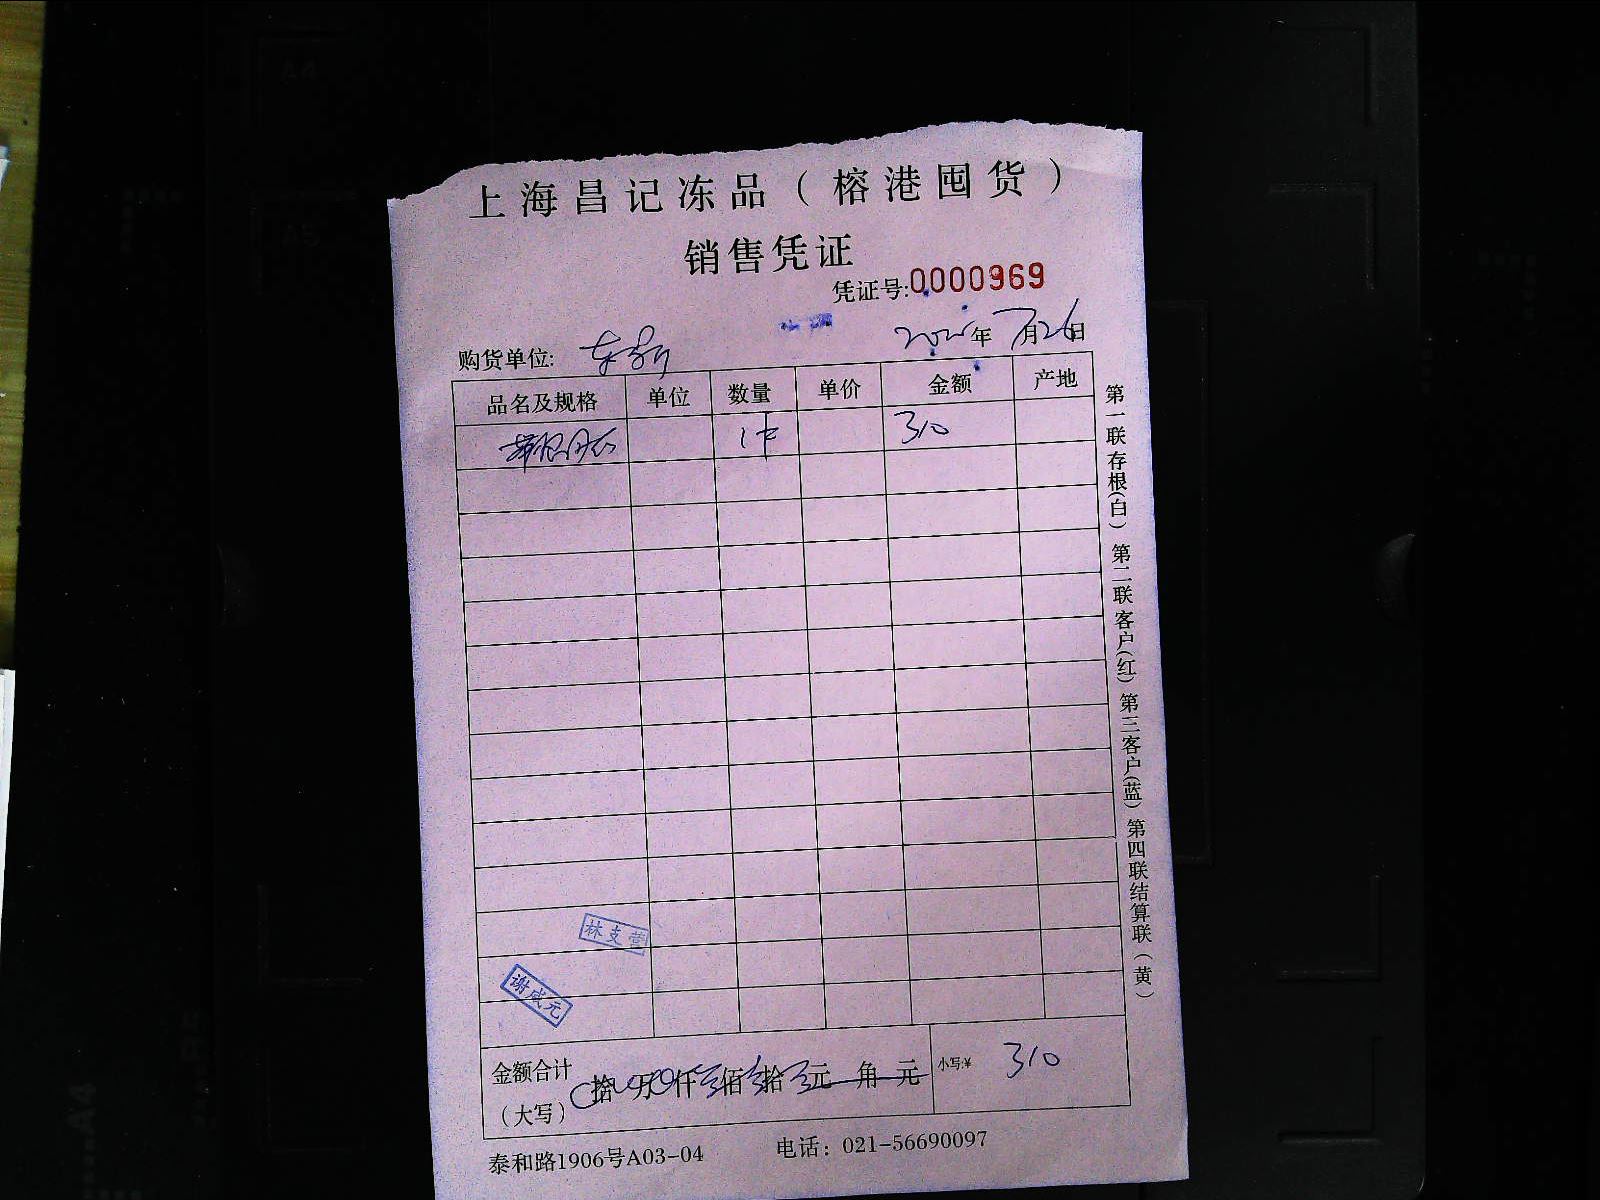 上海昌记冻品（榕港囤货）
销售凭证
凭证号:0000969
购货单位: 年7月26日
品名及规格 单位 数量 单价 金额 产地
1件 310
第一联存根(白) 第二联客户(红) 第三客户(蓝) 第四联结算联(黄)
林支营
谢咸元
金额合计 拾 万 仟 佰 拾 元 角 元 小写:¥ 310
（大写）
泰和路1906号A03-04 电话：021-56690097